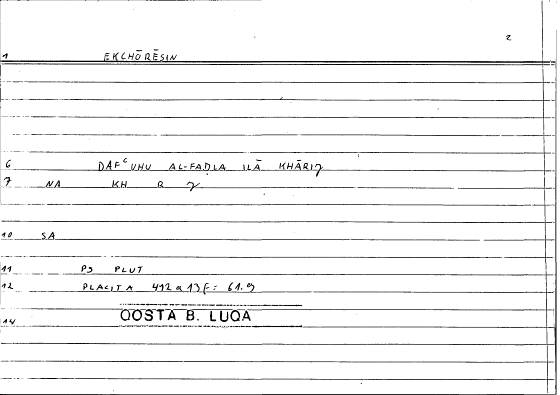 2
1 EKCHŌRĒSIN
6 DAFʿUHU AL-FAḌLA ILĀ KHĀRIǧ
7 NA KH R ǧ
10 SA
11 PS PLUT
12 PLACITA 412 a 13 f = 61. 9
QOSTA B. LUQA
14